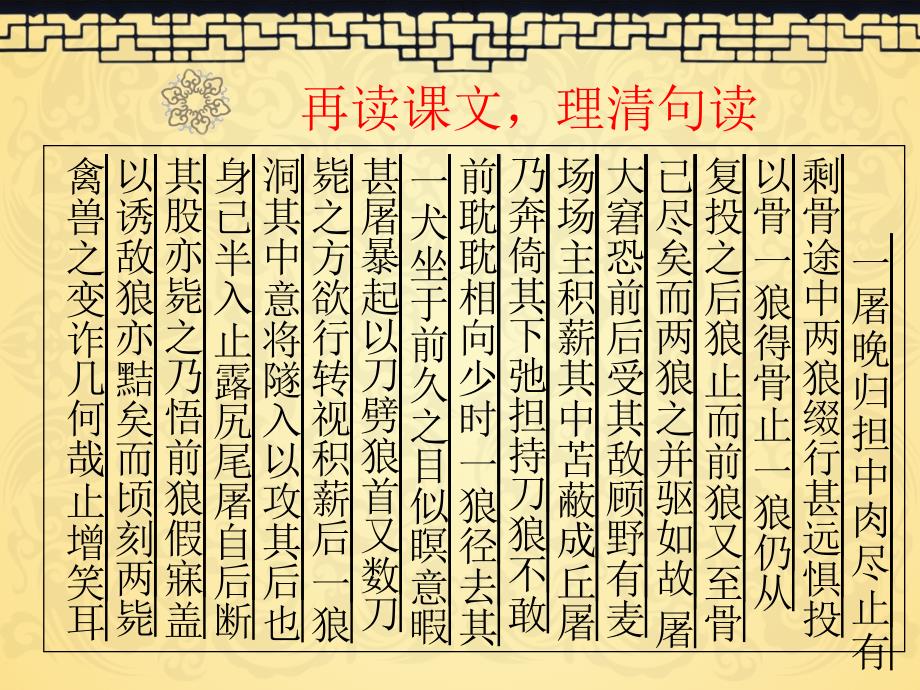 再读课文，理清句读
一屠晚归担中肉尽止有
剩骨途中两狼缀行甚远惧投
以骨一狼得骨止一狼仍从
复投之后狼止而前狼又至骨
已尽矣而两狼之并驱如故 屠
大窘恐前后受其敌顾野有麦
场场主积薪其中苫蔽成丘屠
乃奔倚其下弛担持刀狼不敢
前耽耽相向少时一狼径去其
一犬坐于前久之目似瞑意暇
甚屠暴起以刀劈狼首又数刀
毙之方欲行转视积薪后一狼
洞其中意将隧入以攻其后也
身已半入止露尻尾屠自后断
其股亦毙之乃悟前狼假寐盖
以诱敌狼亦黠矣而顷刻两毙
禽兽之变诈几何哉止增笑耳